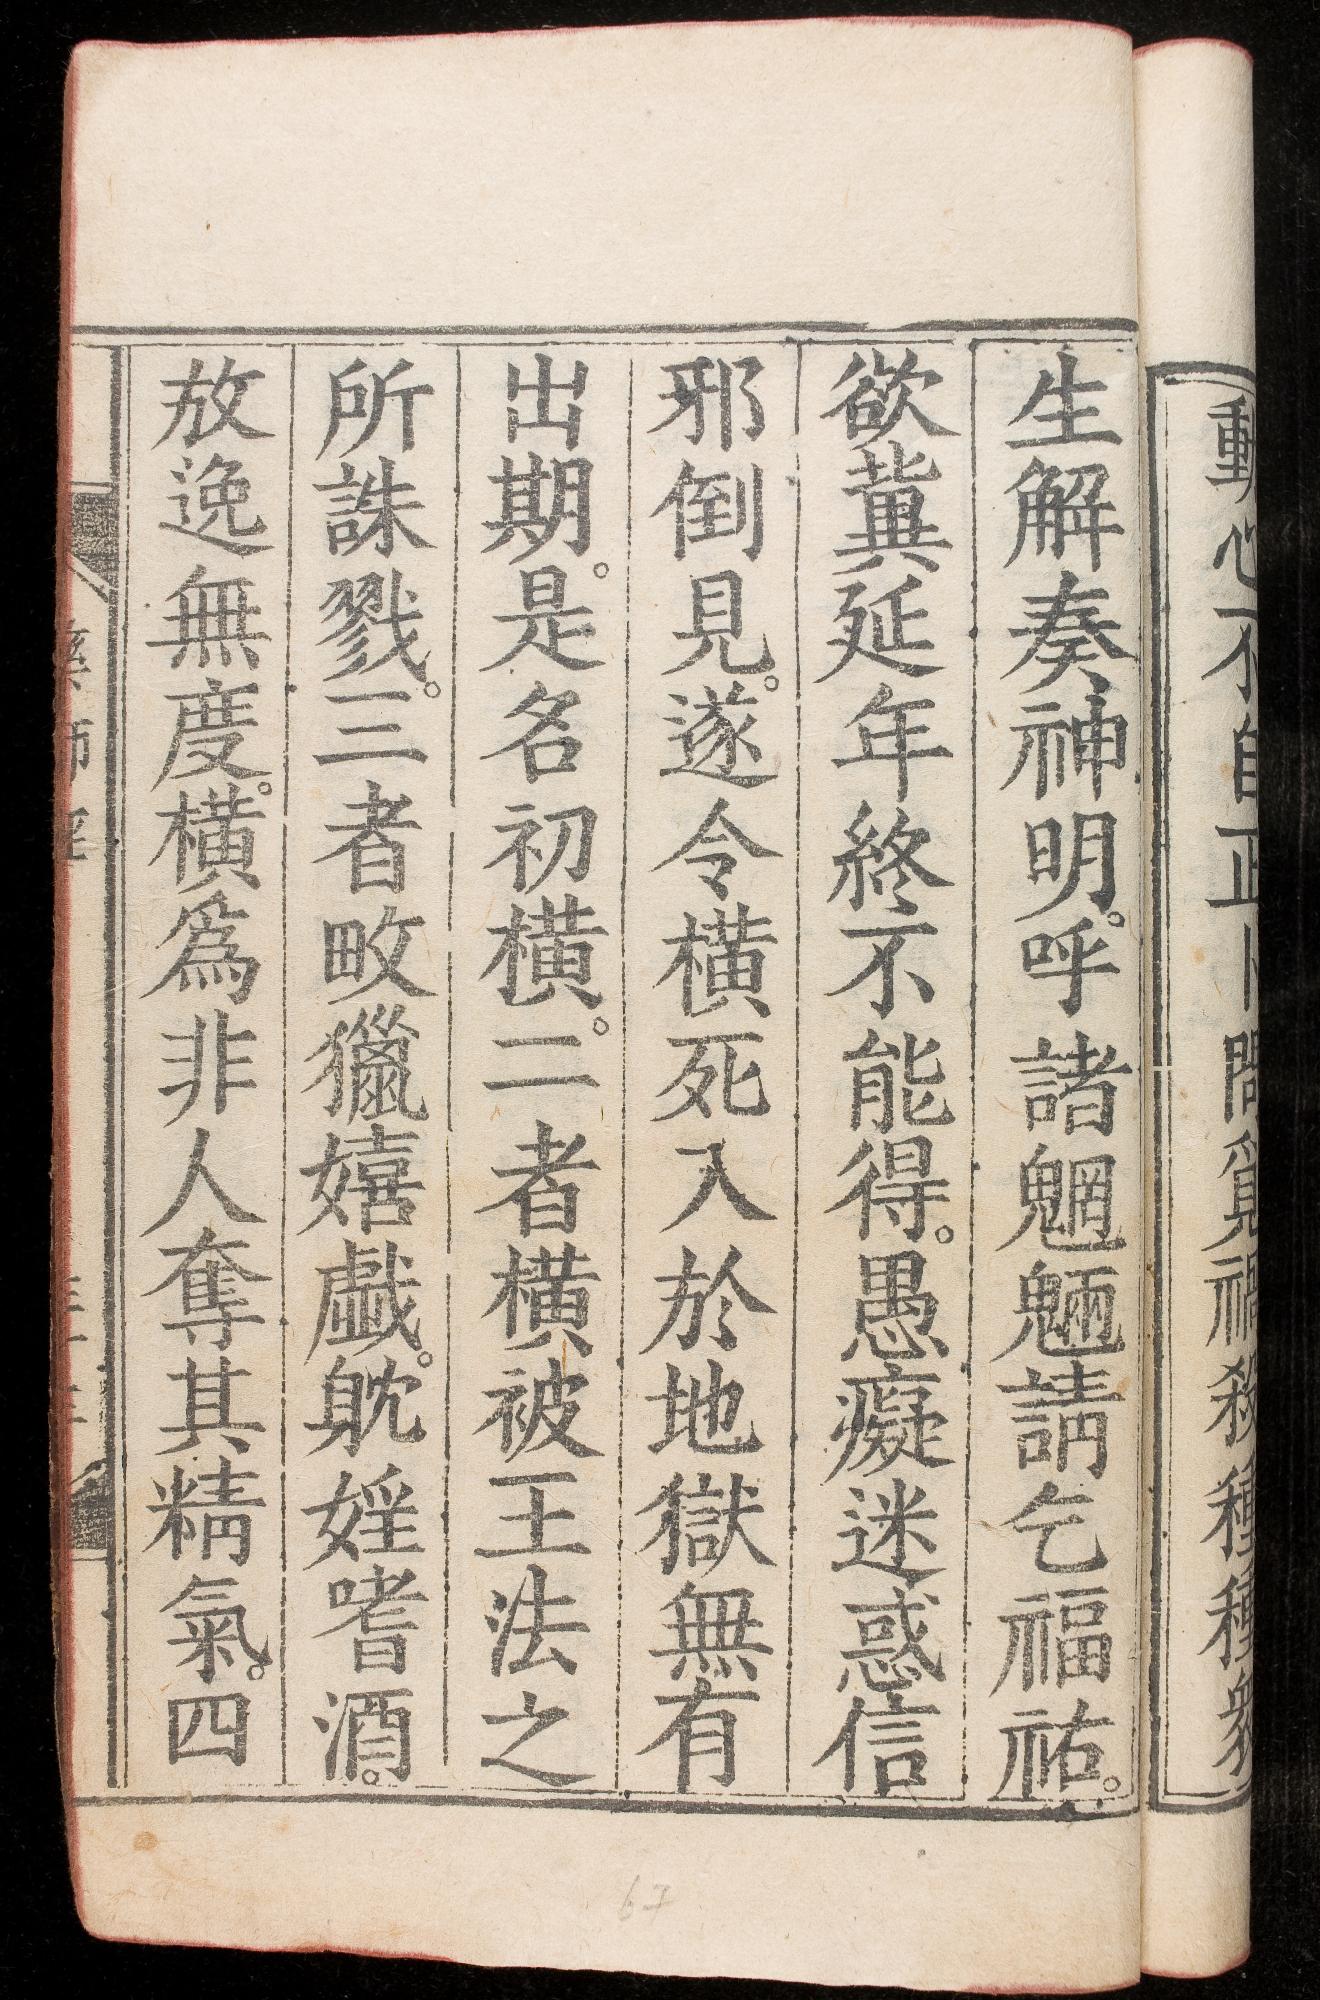 動心不自正卜問覓禍殺種種衆
生解奏神明。呼諸魍魎請乞福祐。
欲冀延年終不能得。愚癡迷惑信
邪倒見。遂令橫死入於地獄無有
出期。是名初橫。二者橫被王法之
所誅戮。三者畋獵嬉戲。躭婬嗜酒。
放逸無度。橫爲非人奪其精氣。四
藥師經
67